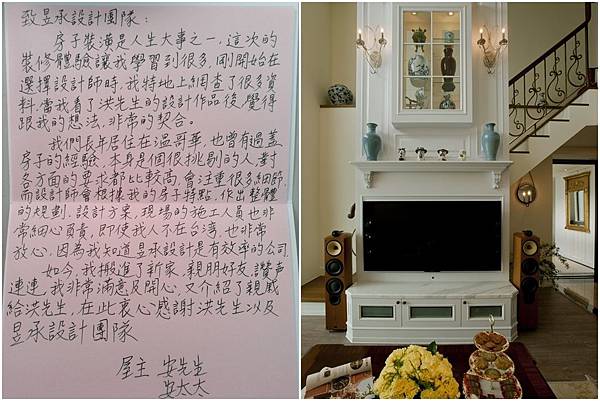 致昱承設計團隊：
房子裝潢是人生大事之一，這次的
裝修體驗讓我學習到很多，剛開始在
選擇設計師時，我特地上網查了很多資
料，當我看了洪先生的設計作品後，覺得
跟我的想法，非常的契合。
我們長年居住在溫哥華，也曾有過蓋
房子的經驗，本身是個很挑剔的人，對
各方面的要求都比較高，會注重很多細節，
而設計師會根據我的房子特點，作出整體
的規劃，設計方案，現場的施工人員也非
常細心負責，即使我人不在台灣，也非常
放心，因為我知道昱承設計是有效率的公司。
如今，我搬進了新家，親朋好友，讚聲
連連，我非常滿意及開心，又介紹了親戚
給洪先生，在此衷心感謝洪先生以及
昱承設計團隊
屋主 安先生
安太太